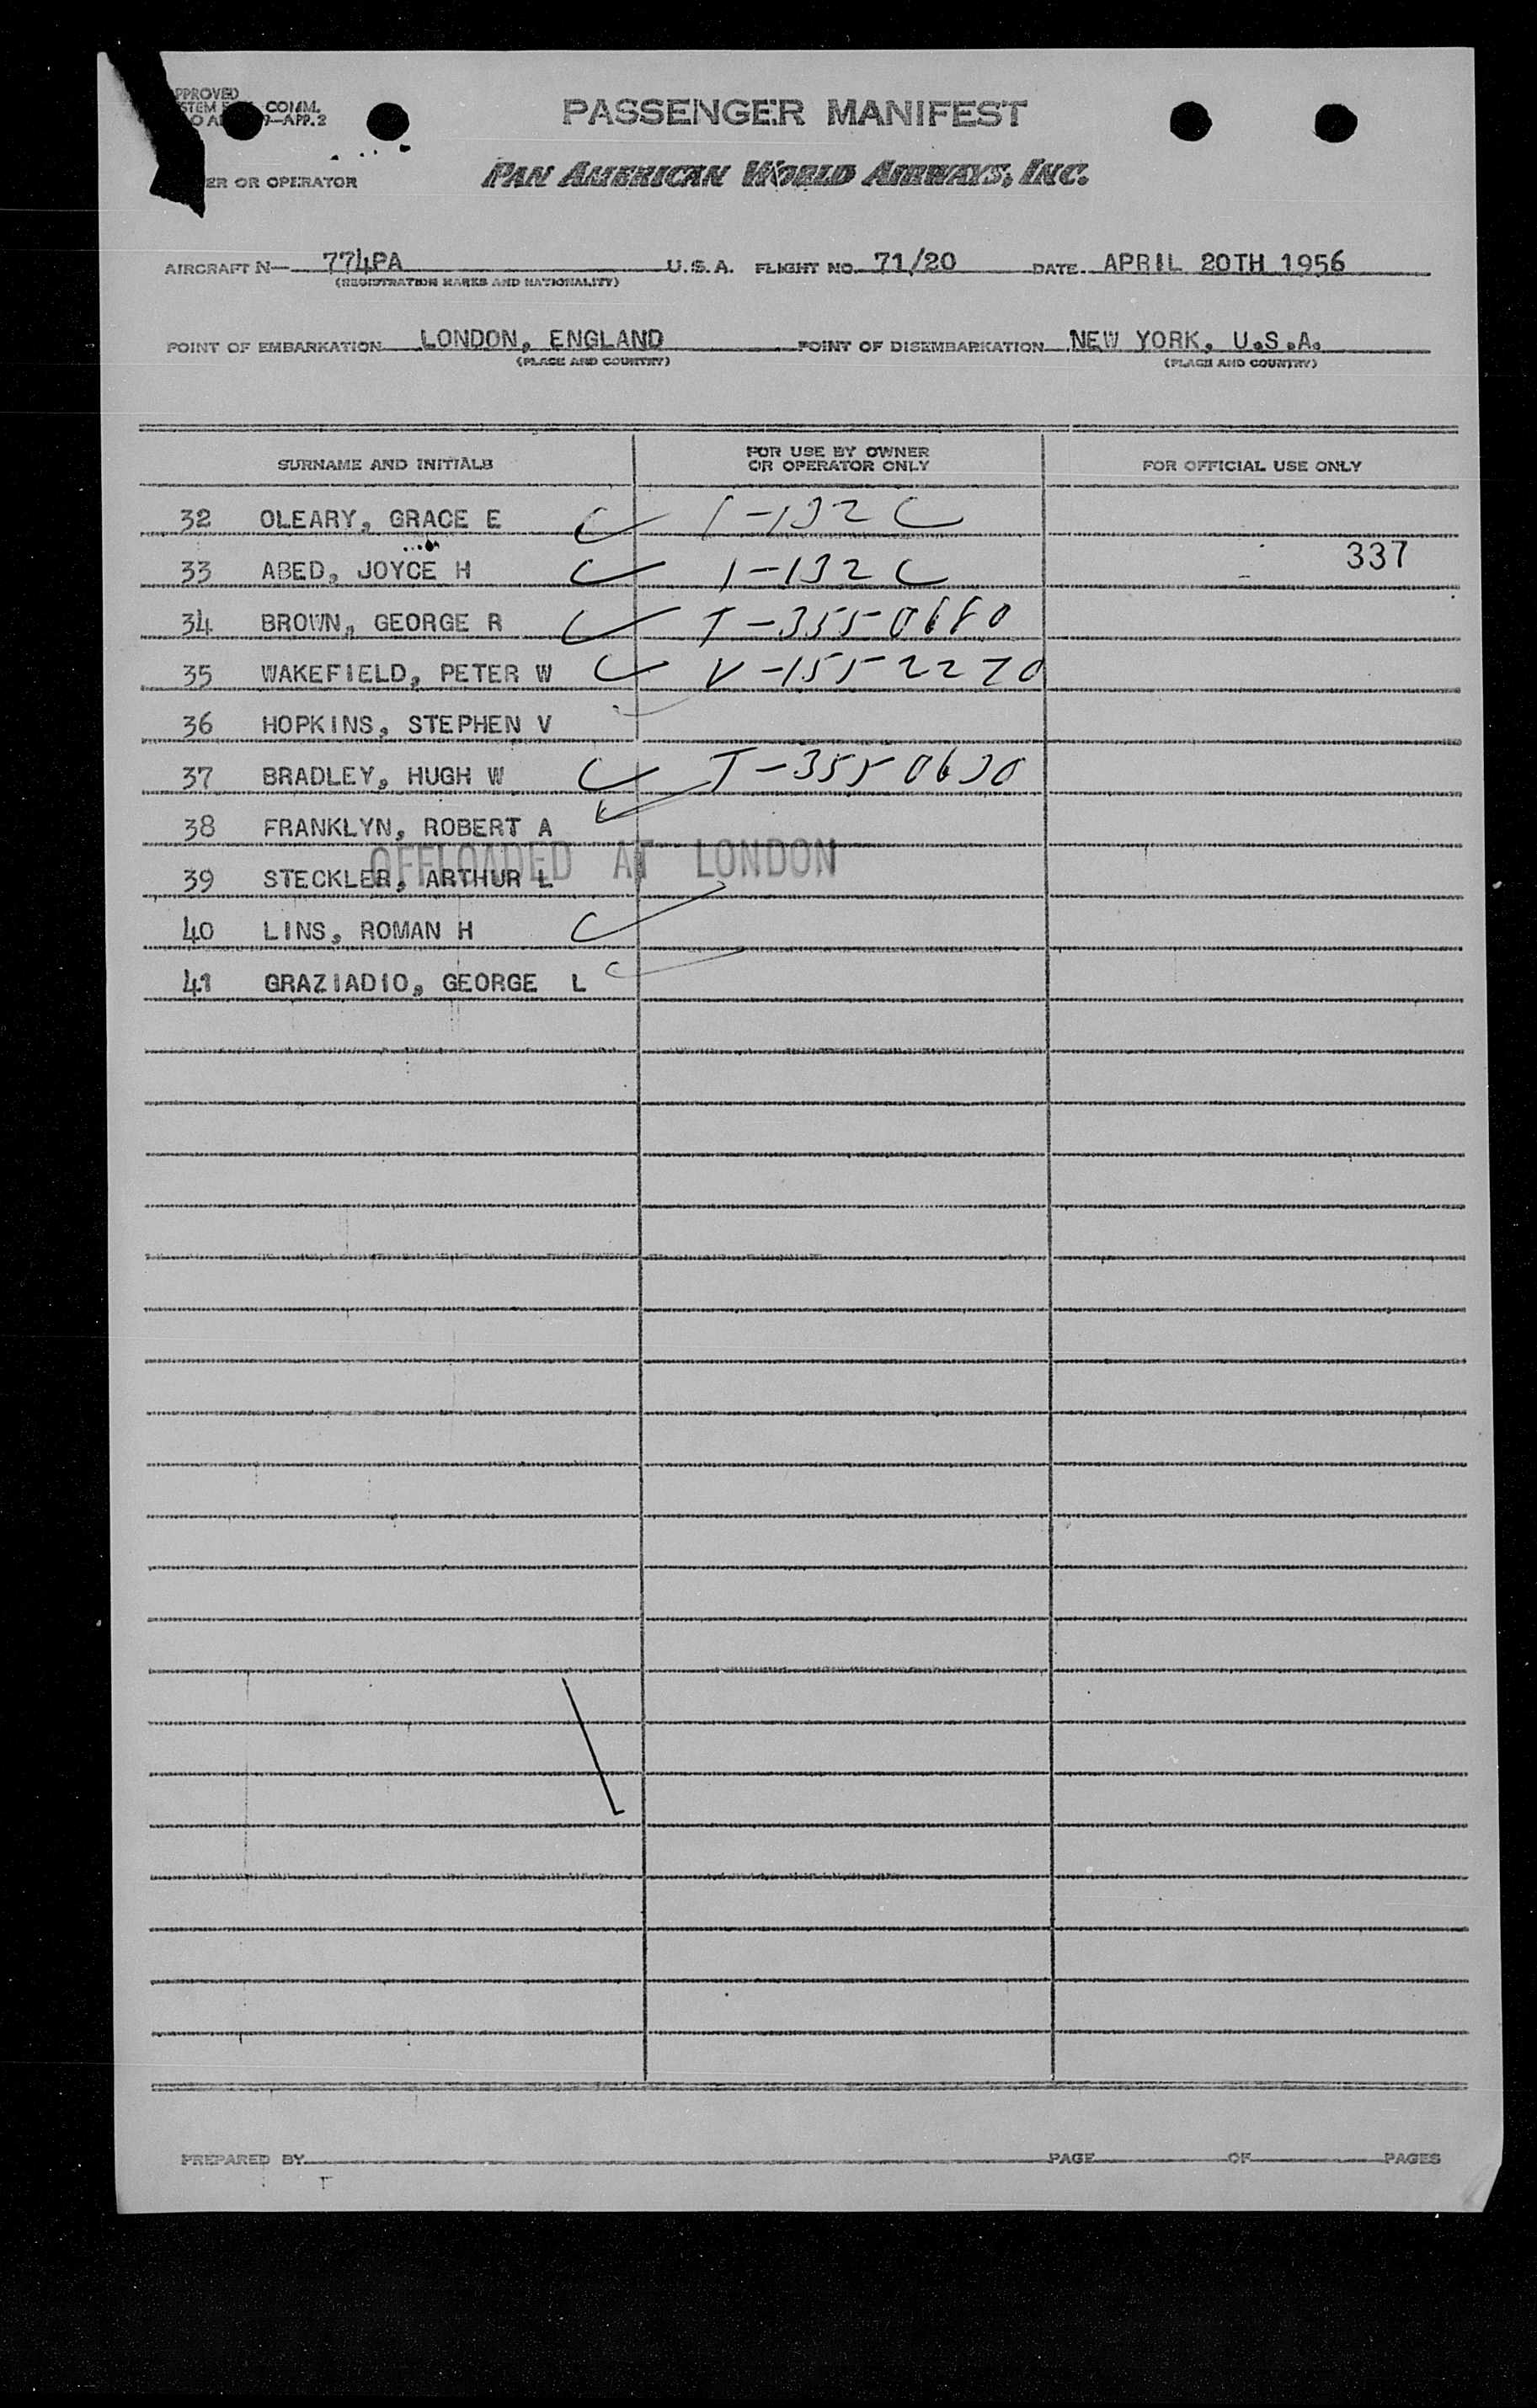 PPROVED
STEM COMM.
9-APP.2
PASSENGER MANIFEST
ER OR OPERATOR
PAN AMERICAN WORLD AIRWAYS, INC.
AIRCRAFT N— 774PA U.S.A. FLIGHT NO. 71/20 DATE APRIL 20TH 1956
(REGISTRATION MARKS AND NATIONALITY)
POINT OF EMBARKATION LONDON, ENGLAND POINT OF DISEMBARKATION NEW YORK, U.S.A.
(PLACE AND COUNTRY) (PLACE AND COUNTRY)
SURNAME AND INITIALS FOR USE BY OWNER OR OPERATOR ONLY FOR OFFICIAL USE ONLY
32 OLEARY, GRACE E 1-132 C
337
33 ABED, JOYCE H 1-132 C
34 BROWN, GEORGE R T-355 0680
35 WAKEFIELD, PETER W V-155 2270
36 HOPKINS, STEPHEN V
37 BRADLEY, HUGH W T-355 0630
38 FRANKLYN, ROBERT A
OFFLOADED AT LONDON
39 STECKLER, ARTHUR L
40 LINS, ROMAN H
41 GRAZIADIO, GEORGE L
PREPARED BY PAGE OF PAGES